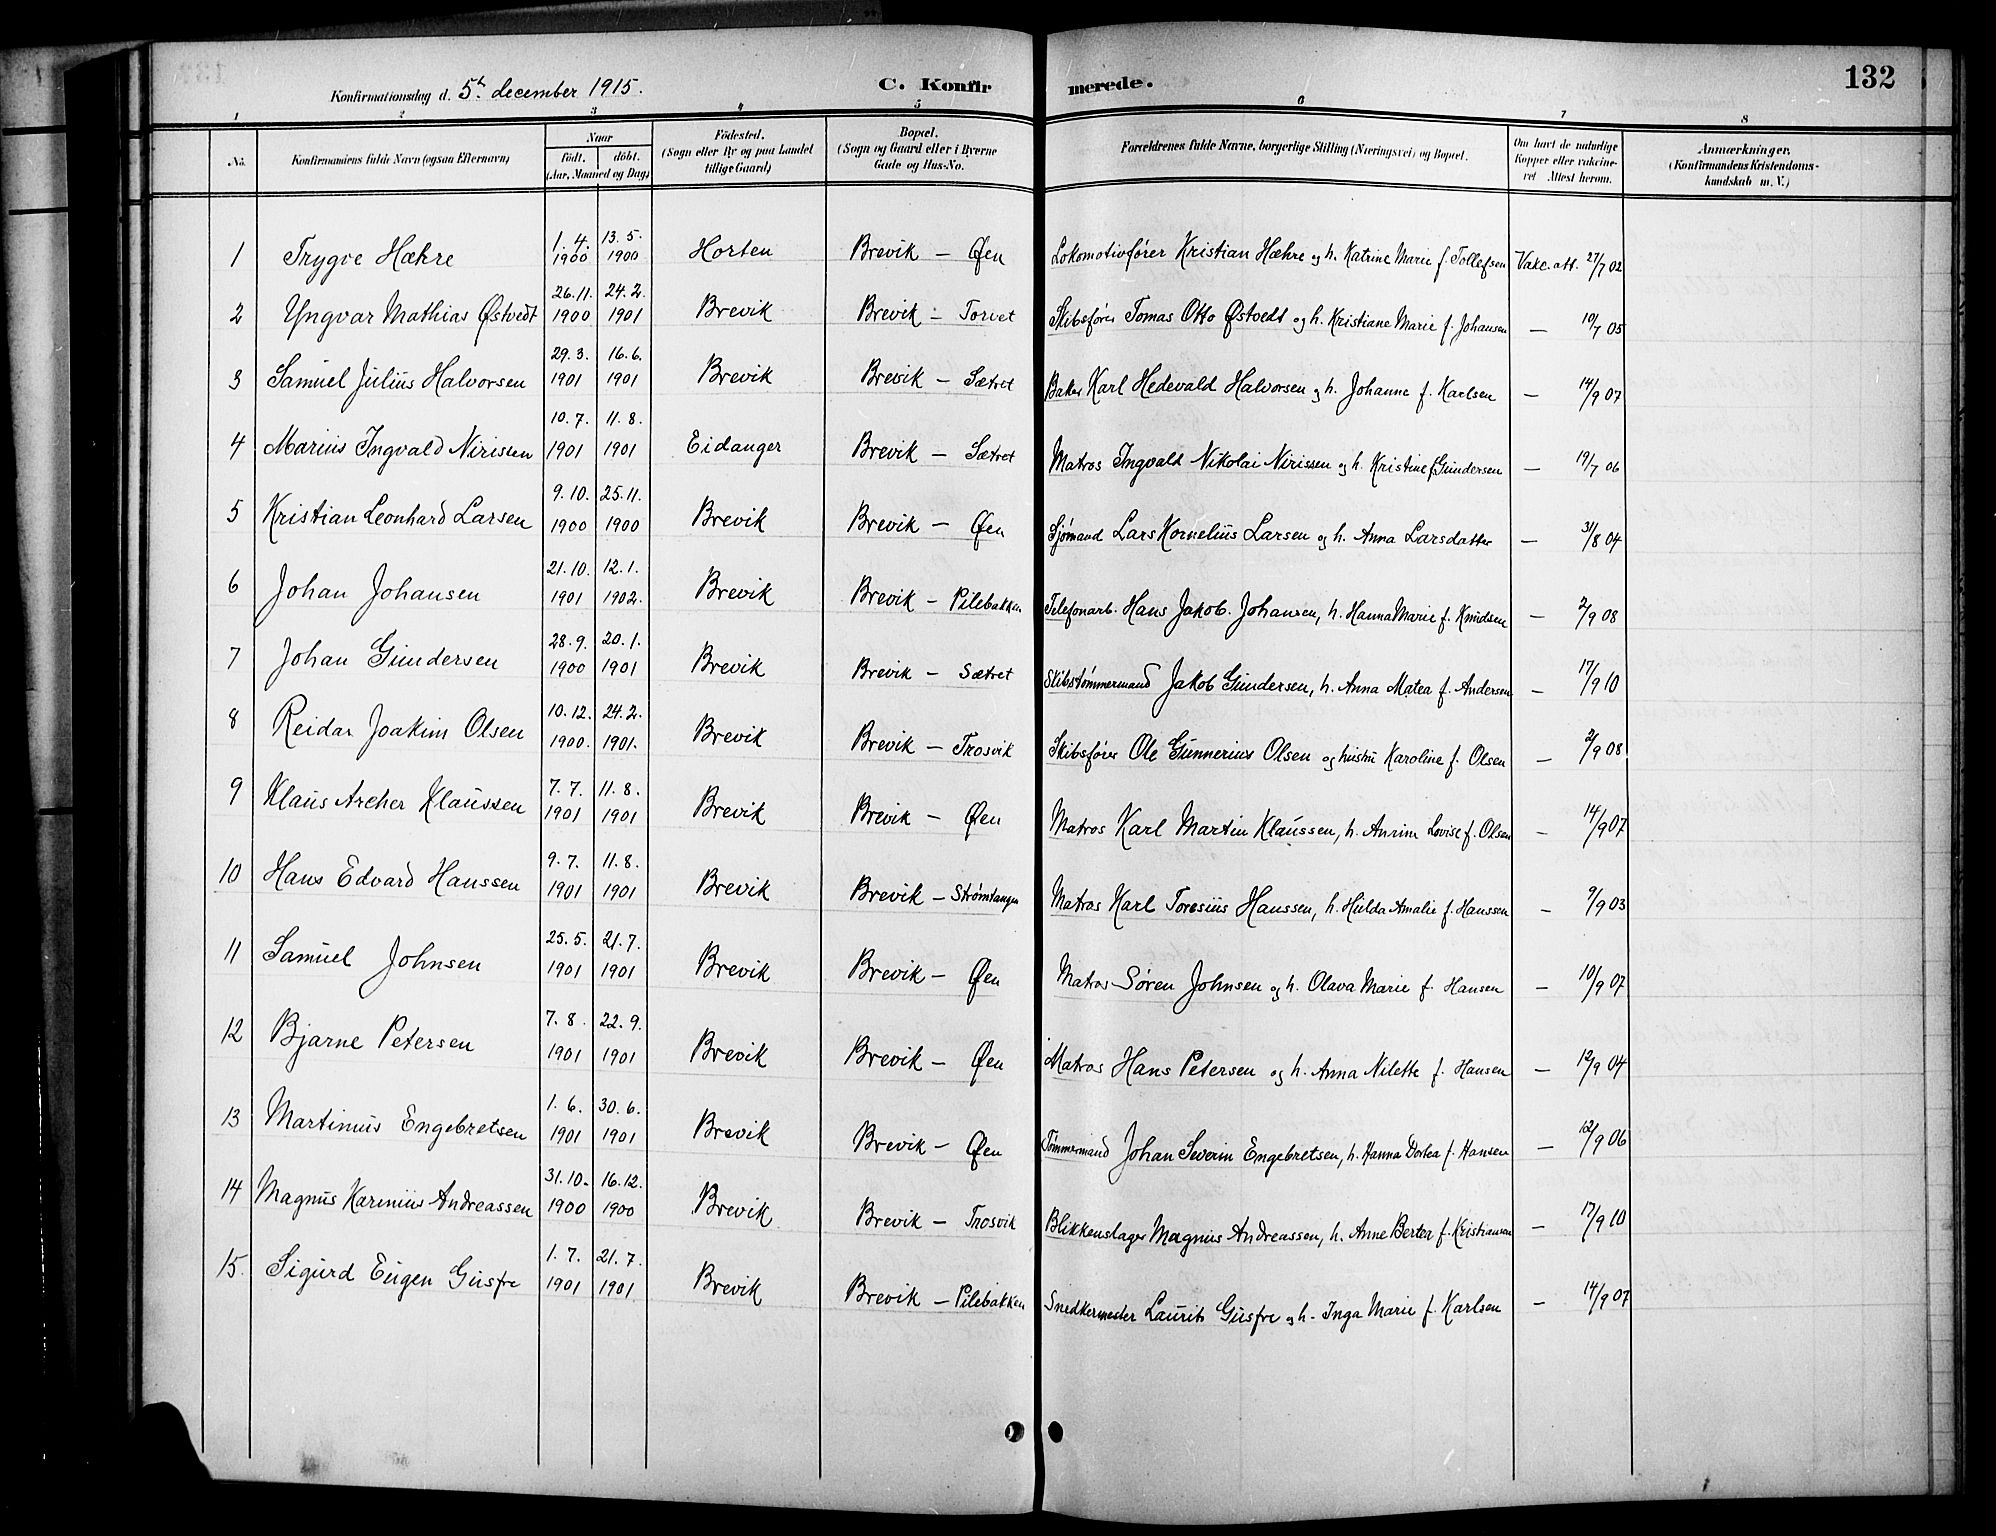 132
Konfirmationsdag d. 5te december 1915.
C. Konfirmerede.
1 2 3 4 5 6 7 8
No.
Konfirmandens fulde Navn (ogsaa Efternavn)
Naar
födt. döbt.
(Aar, Maaned og Dag)
Födested.
(Sogn eller By og paa Landet
tillige Gaard)
Bopæl.
(Sogn og Gaard eller i Byerne
Gade og Hus-No.
Forældrenes fulde Navne, borgerlige Stilling (Næringsvei) og Bopæl.
Om havt de naturlige
Kopper eller vakcine-
ret Attest herom.
Anmærkninger.
(Konfirmandens Kristendoms-
kundskab m. V.)
1 Trygve Hæhre 1. 4. 1900 13. 5. 1900 Horten Brevik — Øen Lokomotivfører Kristian Hæhre og h. Katrine Marie f. Tollefsen Vakc. att. 27/7 02
2 Yngvar Mathias Østvedt 26. 11. 1900 24. 2. 1901 Brevik Brevik — Torvet Skibsfører Tomas Otto Østvedt og h. Kristiane Marie f. Johansen — 10/7 05
3 Samuel Julius Halvorsen 29. 3. 1901 16. 6. 1901 Brevik Brevik — Sætret Baker Karl Hedevald Halvorsen og h. Johanne f. Karlsen — 14/9 07
4 Marius Ingvald Nirissen 10. 7. 1901 11. 8. 1901 Eidanger Brevik — Sætret Matros Ingvald Nikolai Nirissen og h. Kristine f. Gundersen — 19/7 06
5 Kristian Leonhard Larsen 9. 10. 1900 25. 11. 1900 Brevik Brevik — Øen Sjømand Lars Kornelius Larsen og h. Anna Larsdatter — 31/8 04
6 Johan Johansen 21. 10. 1901 12. 1. 1902. Brevik Brevik — Pilebakken Telefonarb. Hans Jakob Johansen, h. Hanna Marie f. Knudsen — 2/9 08
7 Johan Gundersen 28. 9. 1900 20. 1. 1901 Brevik Brevik — Sætret Skibstømmermand Jakob Gundersen, h. Anna Matea f. Andersen — 17/9 10
8 Reidar Joakim Olsen 10. 12. 1900. 24. 2. 1901. Brevik Brevik — Trosvik Skibsfører Ole Gunnerius Olsen og hustru Karoline f. Olsen — 2/9 08
9 Klaus Archer Klaussen 7. 7. 1901 11. 8. 1901 Brevik Brevik — Øen Matros Karl Martin Klaussen, h. Anrine Lovise f. Olsen — 14/9 07
10 Hans Edvard Hanssen 9. 7. 1901 11. 8. 1901 Brevik Brevik — Strømtangen Matros Karl Toresius Hanssen, h. Hulda Amalie f. Hanssen — 9/9 03
11 Samuel Johnsen 25. 5. 1901 21. 7. 1901 Brevik Brevik — Øen Matros Søren Johnsen og h. Olava Marie f. Hansen — 10/9 07
12 Bjarne Petersen 7. 8. 1901 22. 9. 1901 Brevik Brevik — Øen Matros Hans Petersen og h. Anna Nilette f. Hansen — 12/9 04
13 Martinius Engebretsen 1. 6. 1901 30. 6. 1901 Brevik Brevik — Øen Tømmermand Johan Severin Engebretsen, h. Hanna Dortea f. Hansen — 12/9 06
14 Magnus Karenius Andreassen 31. 10. 1900 16. 12. 1900 Brevik Brevik — Trosvik Blikkenslager Magnus Andreassen, h. Anne Bertea f. Kristiansen — 17/9 10
15. Sigurd Eugen Gusfre 1. 7. 1901 21. 7. 1901 Brevik Brevik — Pilebakken Snedkermester Laurits Gusfre og h. Inga Marie f. Karlsen — 14/9 07